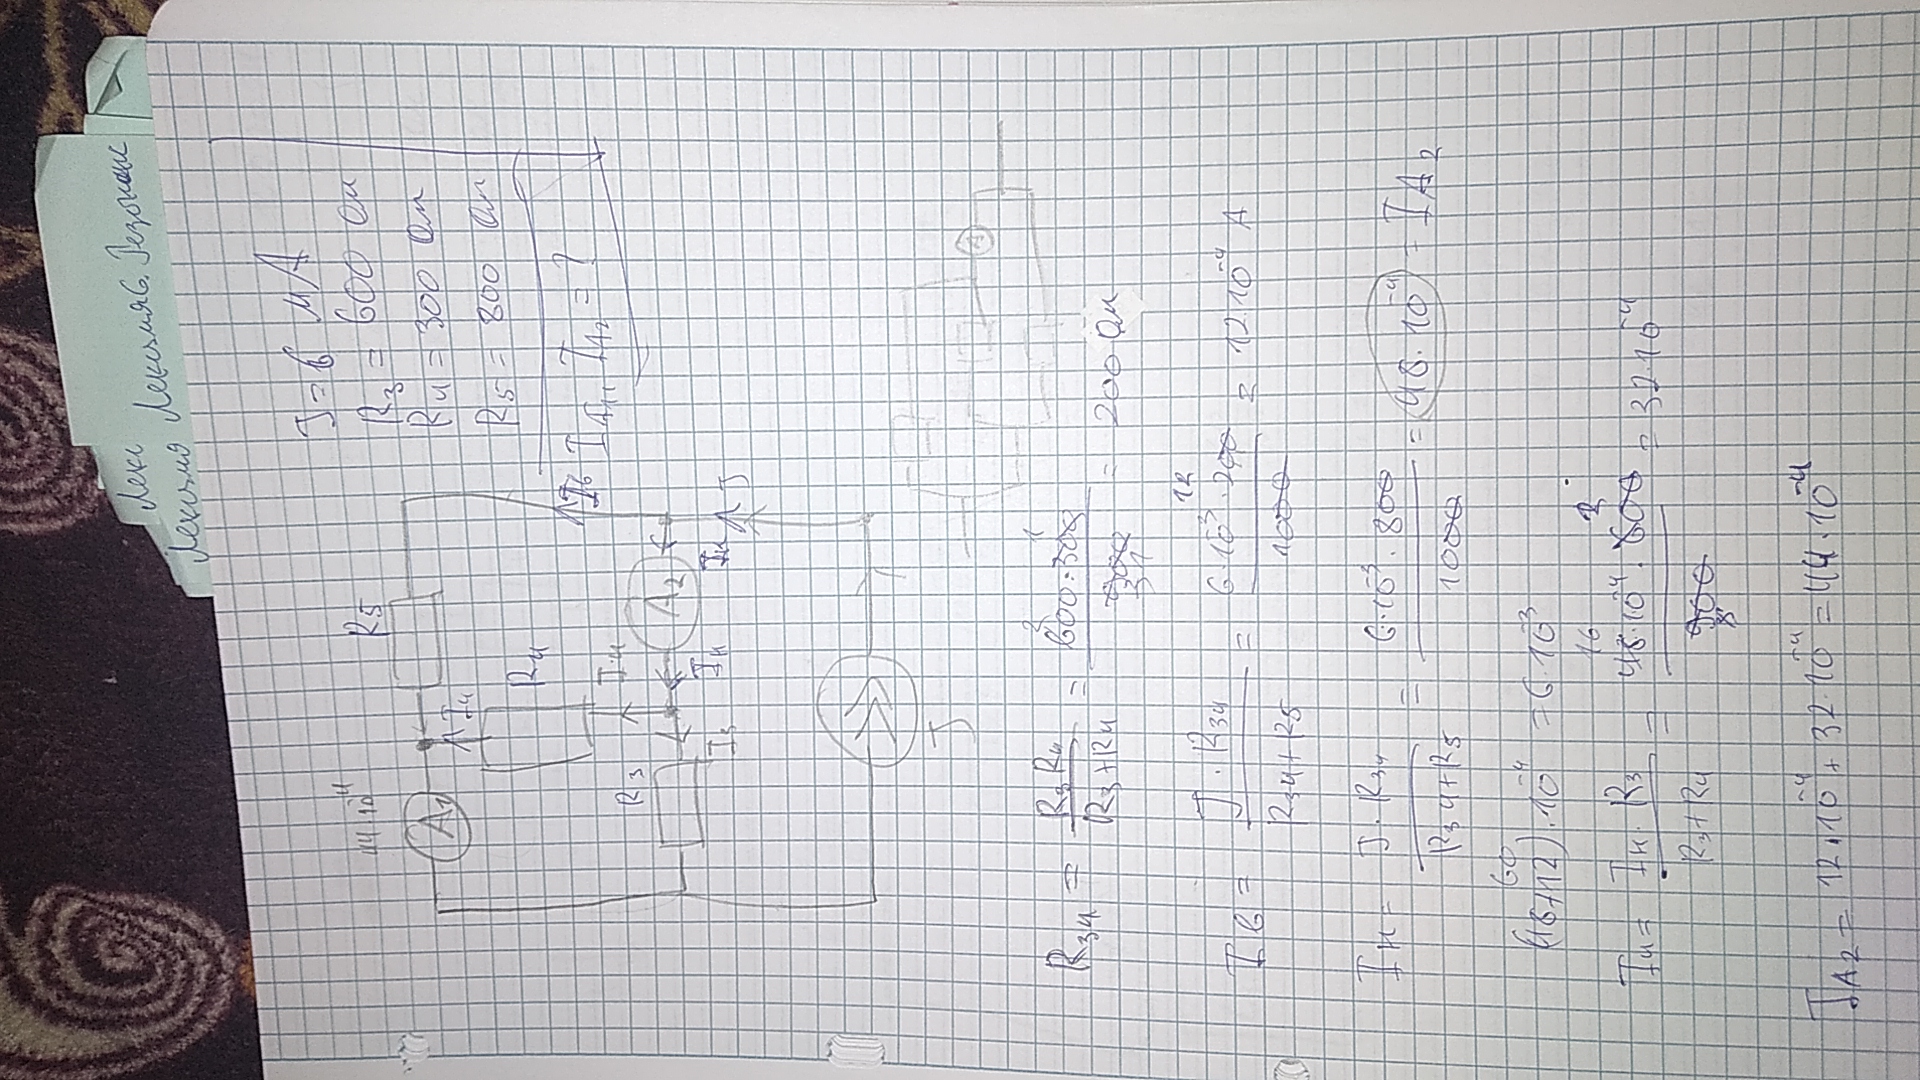 Лекц
Лекция Лекция 6. Резонанс
J = 6 мА
R3 = 600 Ом
R4 = 300 Ом
R5 = 800 Ом
IA1, IA2 = ?
44·10^-4
R5
A1
I4
R4
Iв
I4
R3
A2
I3
Iн
Iн
J
J
A
R34 = R3R4 / (R3+R4) = 600·300 / 900 = 200 Ом
Iв = J·R34 / (R34+R5) = 6·10^-3·200 / 1000 = 12·10^-4 А
Iн = J·R34 / (R34+R5) = 6·10^-3·800 / 1000 = 48·10^-4 = IA2
60
(48+12)·10^-4 = 6·10^-3
I4 = Iн·R3 / (R3+R4) = 48·10^-4·600 / 900 = 32·10^-4
IA2 = 12·10^-4 + 32·10^-4 = 44·10^-4